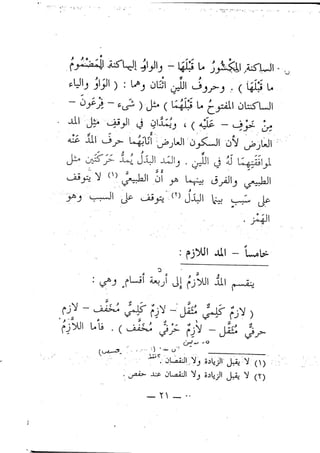 الساكنة المكسور ما قبلها – والواو الساكنة المضموم
ما قبلها ) . وحروف اللين اثنان وهما : ( الواو والياء
الساكنتان المفتوح ما قبلهما ) مثل ( شيء – فرعون –
من خوف – عليه ) ، ويمدان في الوقف مثل المد
العارض لأن السكون العارض أنابهما حرف المد عنه
لموافقتهما له في اللين . والمد البدل يمد حركتين مثل
الطبيعي والفرق بينهما هو أن الطبيعي (١) لا يتوقف
على سبب بينما البدل (٢) يتوقف على السبب وهو
الهمز .
خامسا – المد اللازم :
ينقسم المد اللازم إلى أربعة أقسام وهي :
( لازم كلمي مثقل – لازم كلمي مخفف – لازم
حرفي مثقل – لازم حرفي مخفف ) . فأما اللازم
(١) لا يقبل الزيادة ولا النقصان
(٢) لا يقبل الزيادة ولا النقصان عند حفص .
– ٢١ –